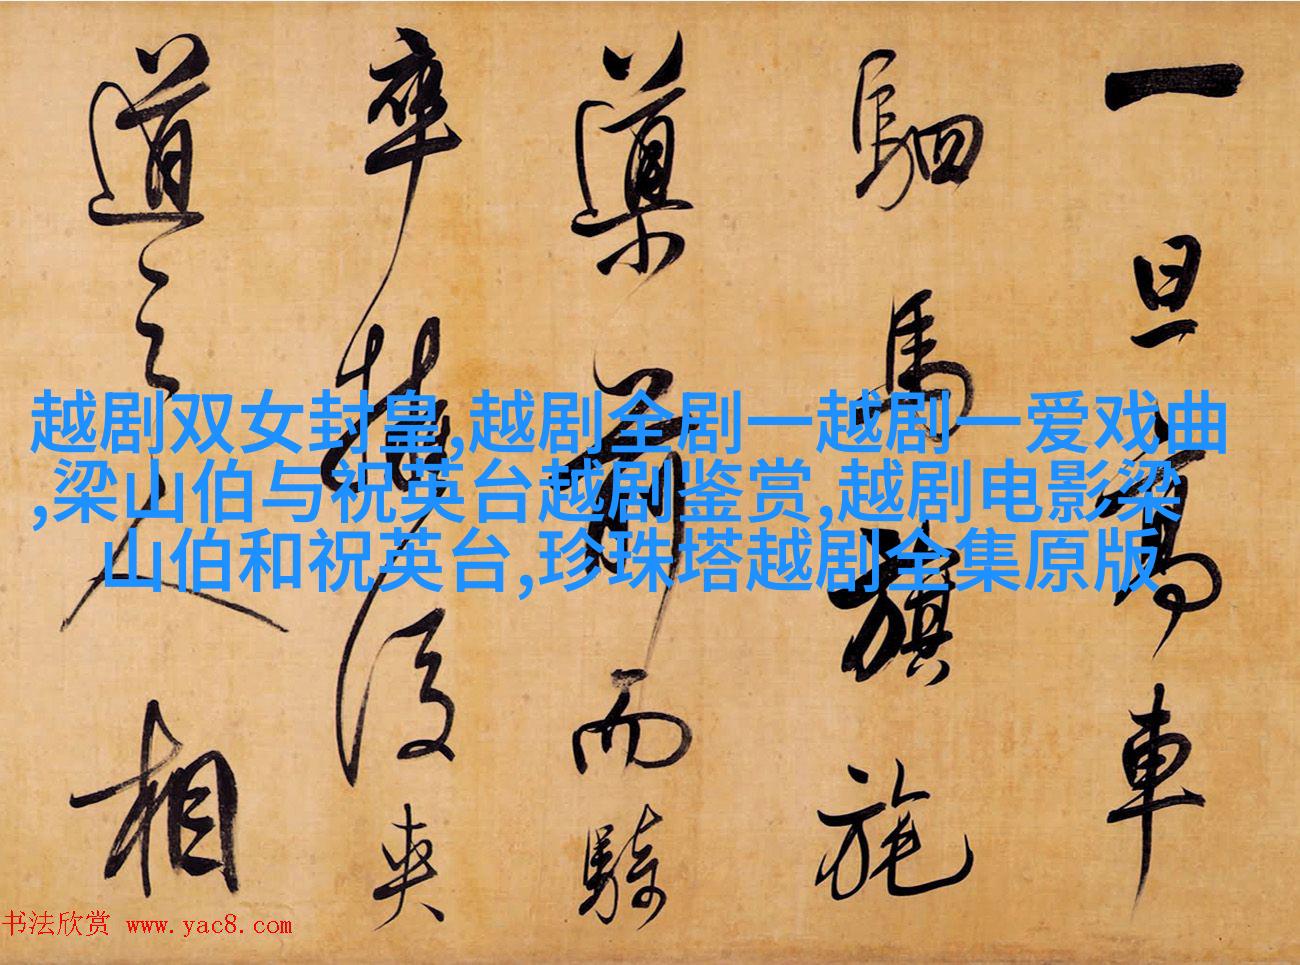 一旦高車
駟馬旗旄
導前而騎
卒擁後夾
道之人相
越剧双女封皇,越剧全剧一越剧一爱戏曲
,梁山伯与祝英台越剧鉴赏,越剧电影梁
山伯和祝英台,珍珠塔越剧全集原版
书法欣赏 www.yac8.com